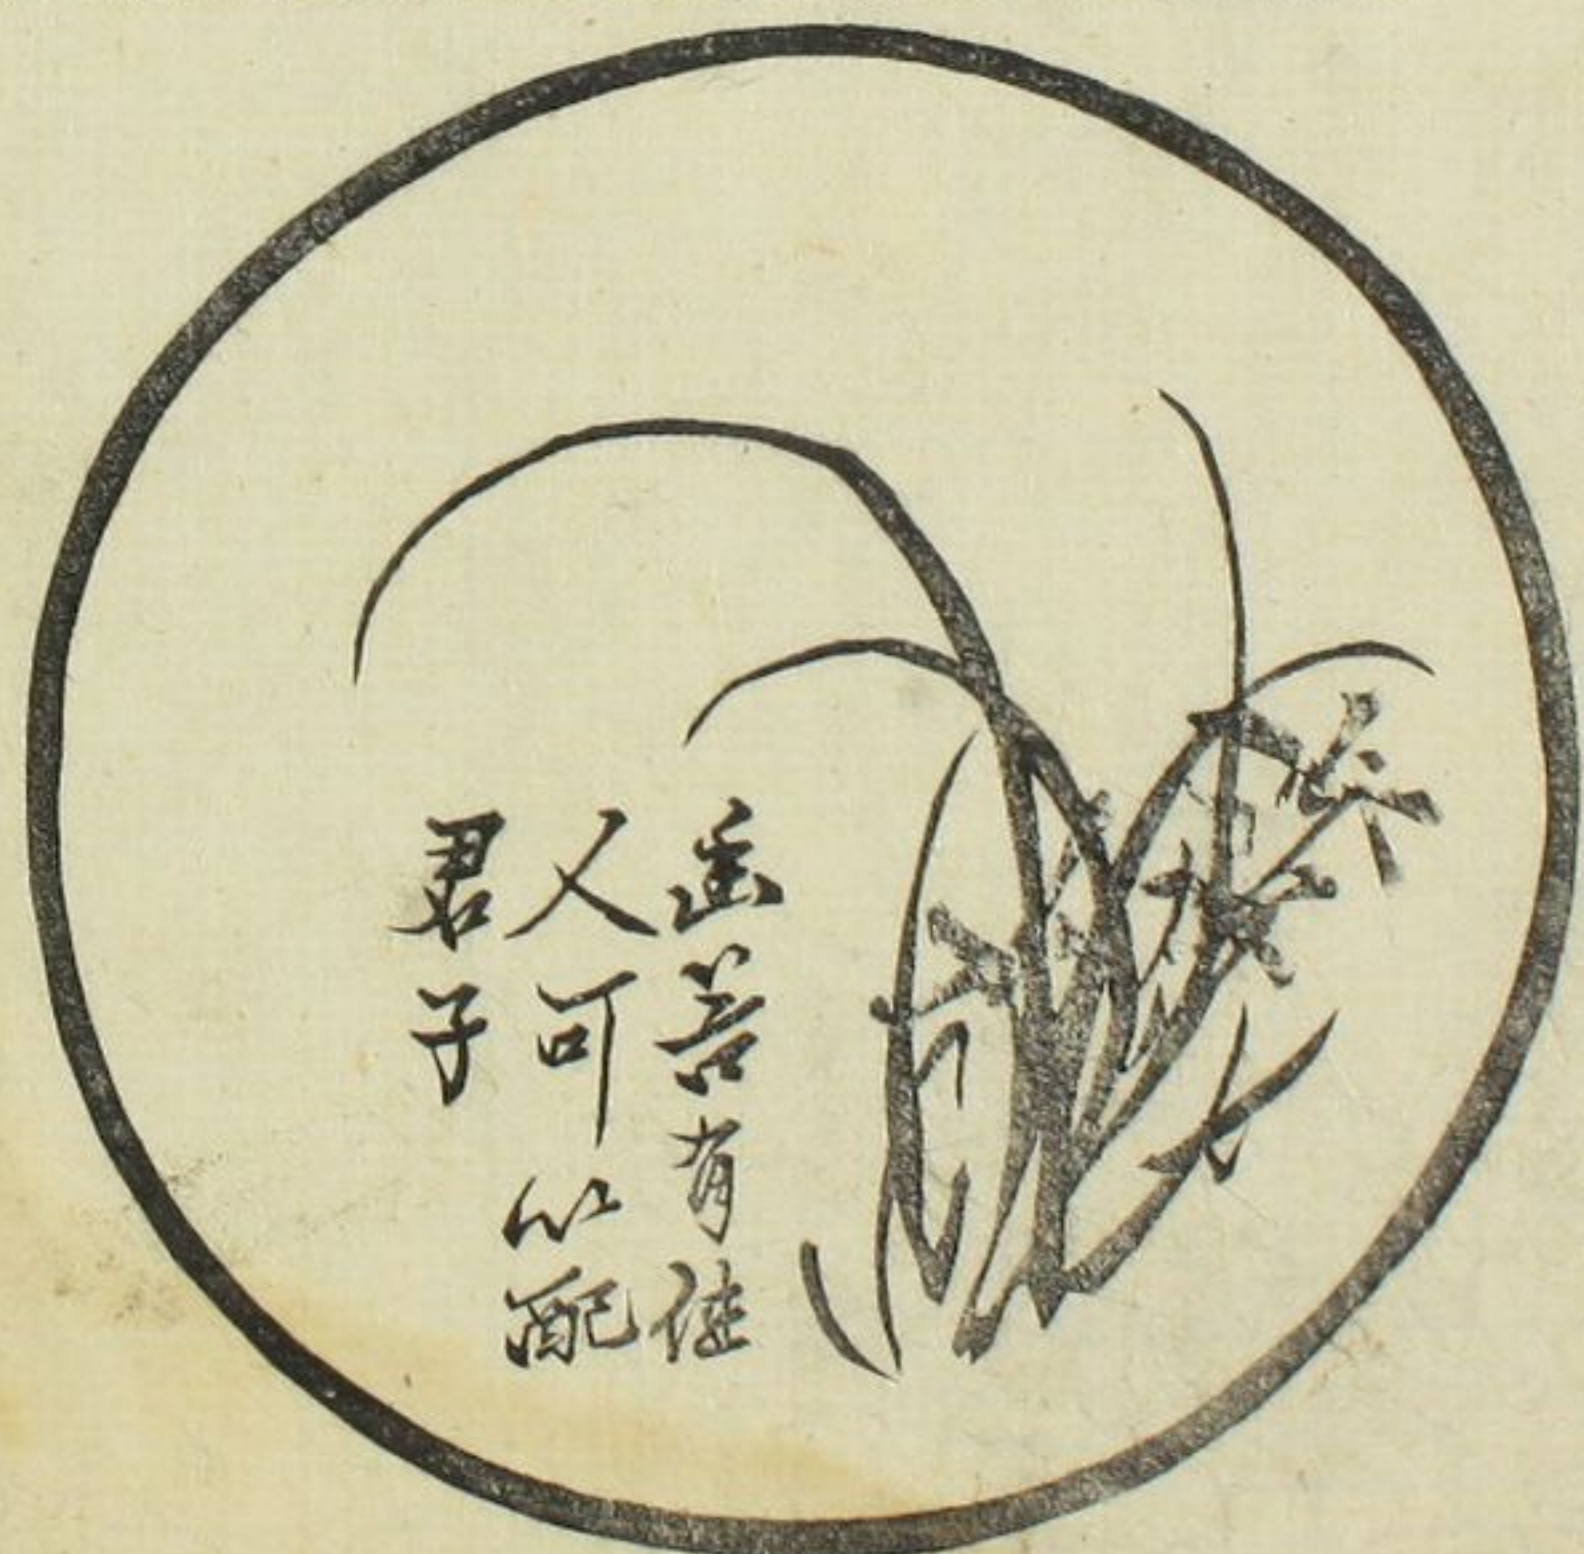 幽芳有佳
人可以配
君子